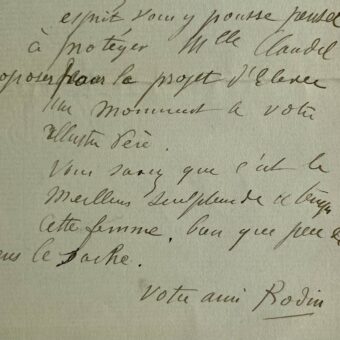 esprit vous y pousse pensez
à protéger Mlle Claudel
oposer pour le projet d'Elever
un monument à votre
illustre Père.
Vous savez que c'est le
meilleur sculpteur de ce temps
Cette femme. bien que peu
le sache.
Votre ami Rodin